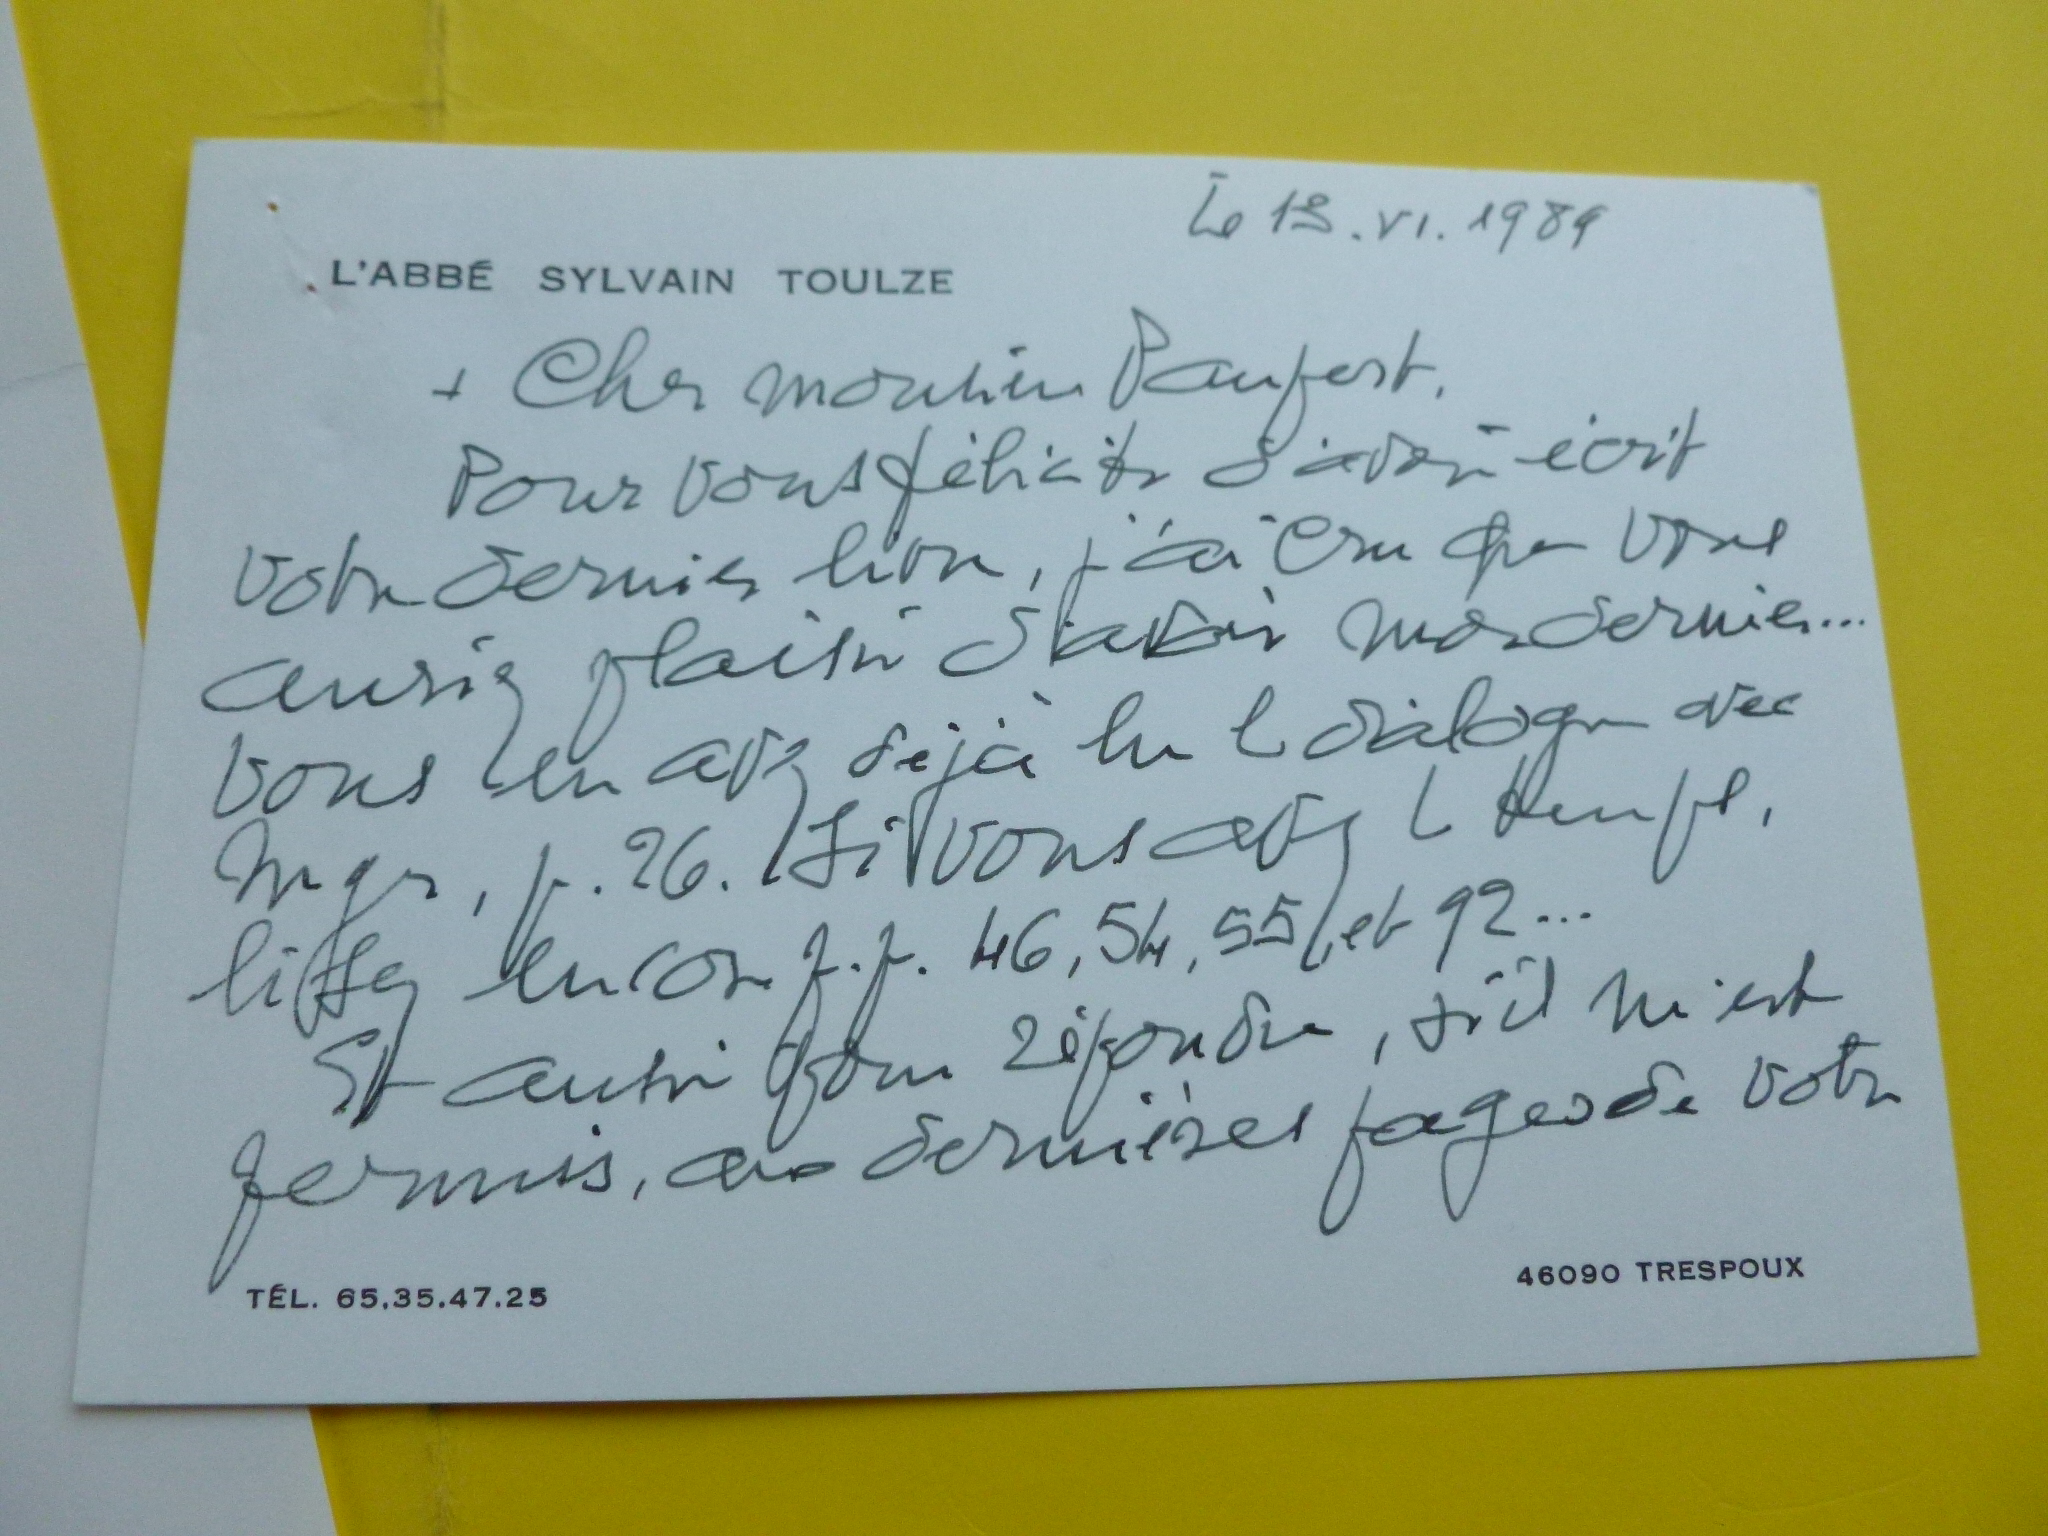 Le 13.VI.1989
L'ABBÉ SYLVAIN TOULZE
+ Cher
Pour vous féliciter d'avoir écrit
votre dernier livre, j'ai cru que vous
auriez plaisir d'avoir mon dernier...
Vous en avez déjà lu le dialogue avec
Mgr, p. 26. Si vous avez le temps,
lisez encore p.p. 46, 54, 55, et 92...
Et aussi pour répondre, s'il m'est
permis, aux dernières pages de votre
TÉL. 65.35.47.25
46090 TRESPOUX